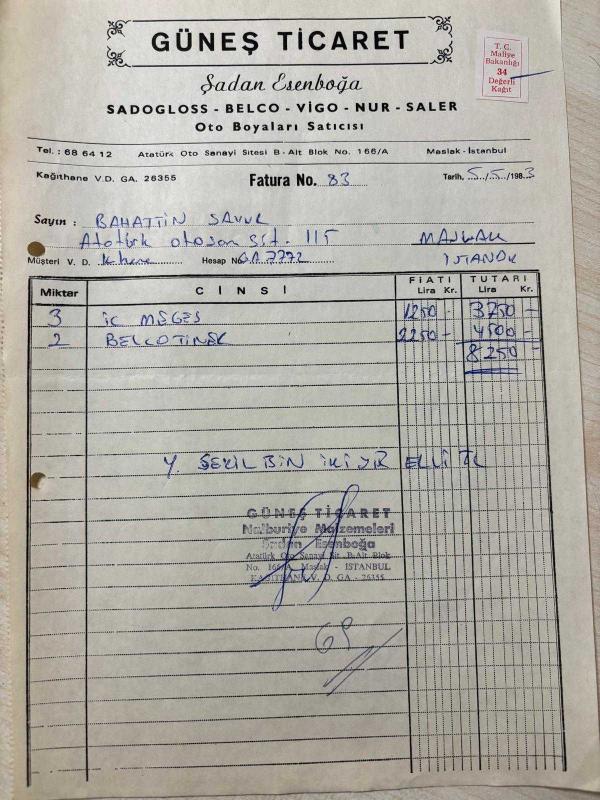 GÜNEŞ TİCARET
T. C.
Maliye
Bakanlığı
34
Değerli
Kağıt
Şadan Esenboğa
SADOGLOSS - BELCO - VİGO - NUR - SALER
Oto Boyaları Satıcısı
Tel. : 68 64 12 Atatürk Oto Sanayi Sitesi B - Alt Blok No. 166/A Maslak - İstanbul
Kağıthane V.D. GA. 26355 Fatura No. 83 Tarih, 5/5/1983
Sayın : BAHATTİN
Atatürk otosan sit. 115 MASLAK
Müşteri V. D. Hesap No GA 7772 İSTANBUL
Miktar CİNSİ FİATI Lira Kr. TUTARI Lira Kr.
3 İC 1250 - 3750 -
2 2250 - 4500 -
8250 -
Y. SEKİZ BİN İKİ YÜZ ELLİ TL
GÜNEŞ TİCARET
Nalburiye Malzemeleri
Şadan Esenboğa
Atatürk Oto Sanayi Sit - B.Alt Blok
No. 166/A Maslak - İSTANBUL
KAĞITHANE V. D. GA - 26355
69